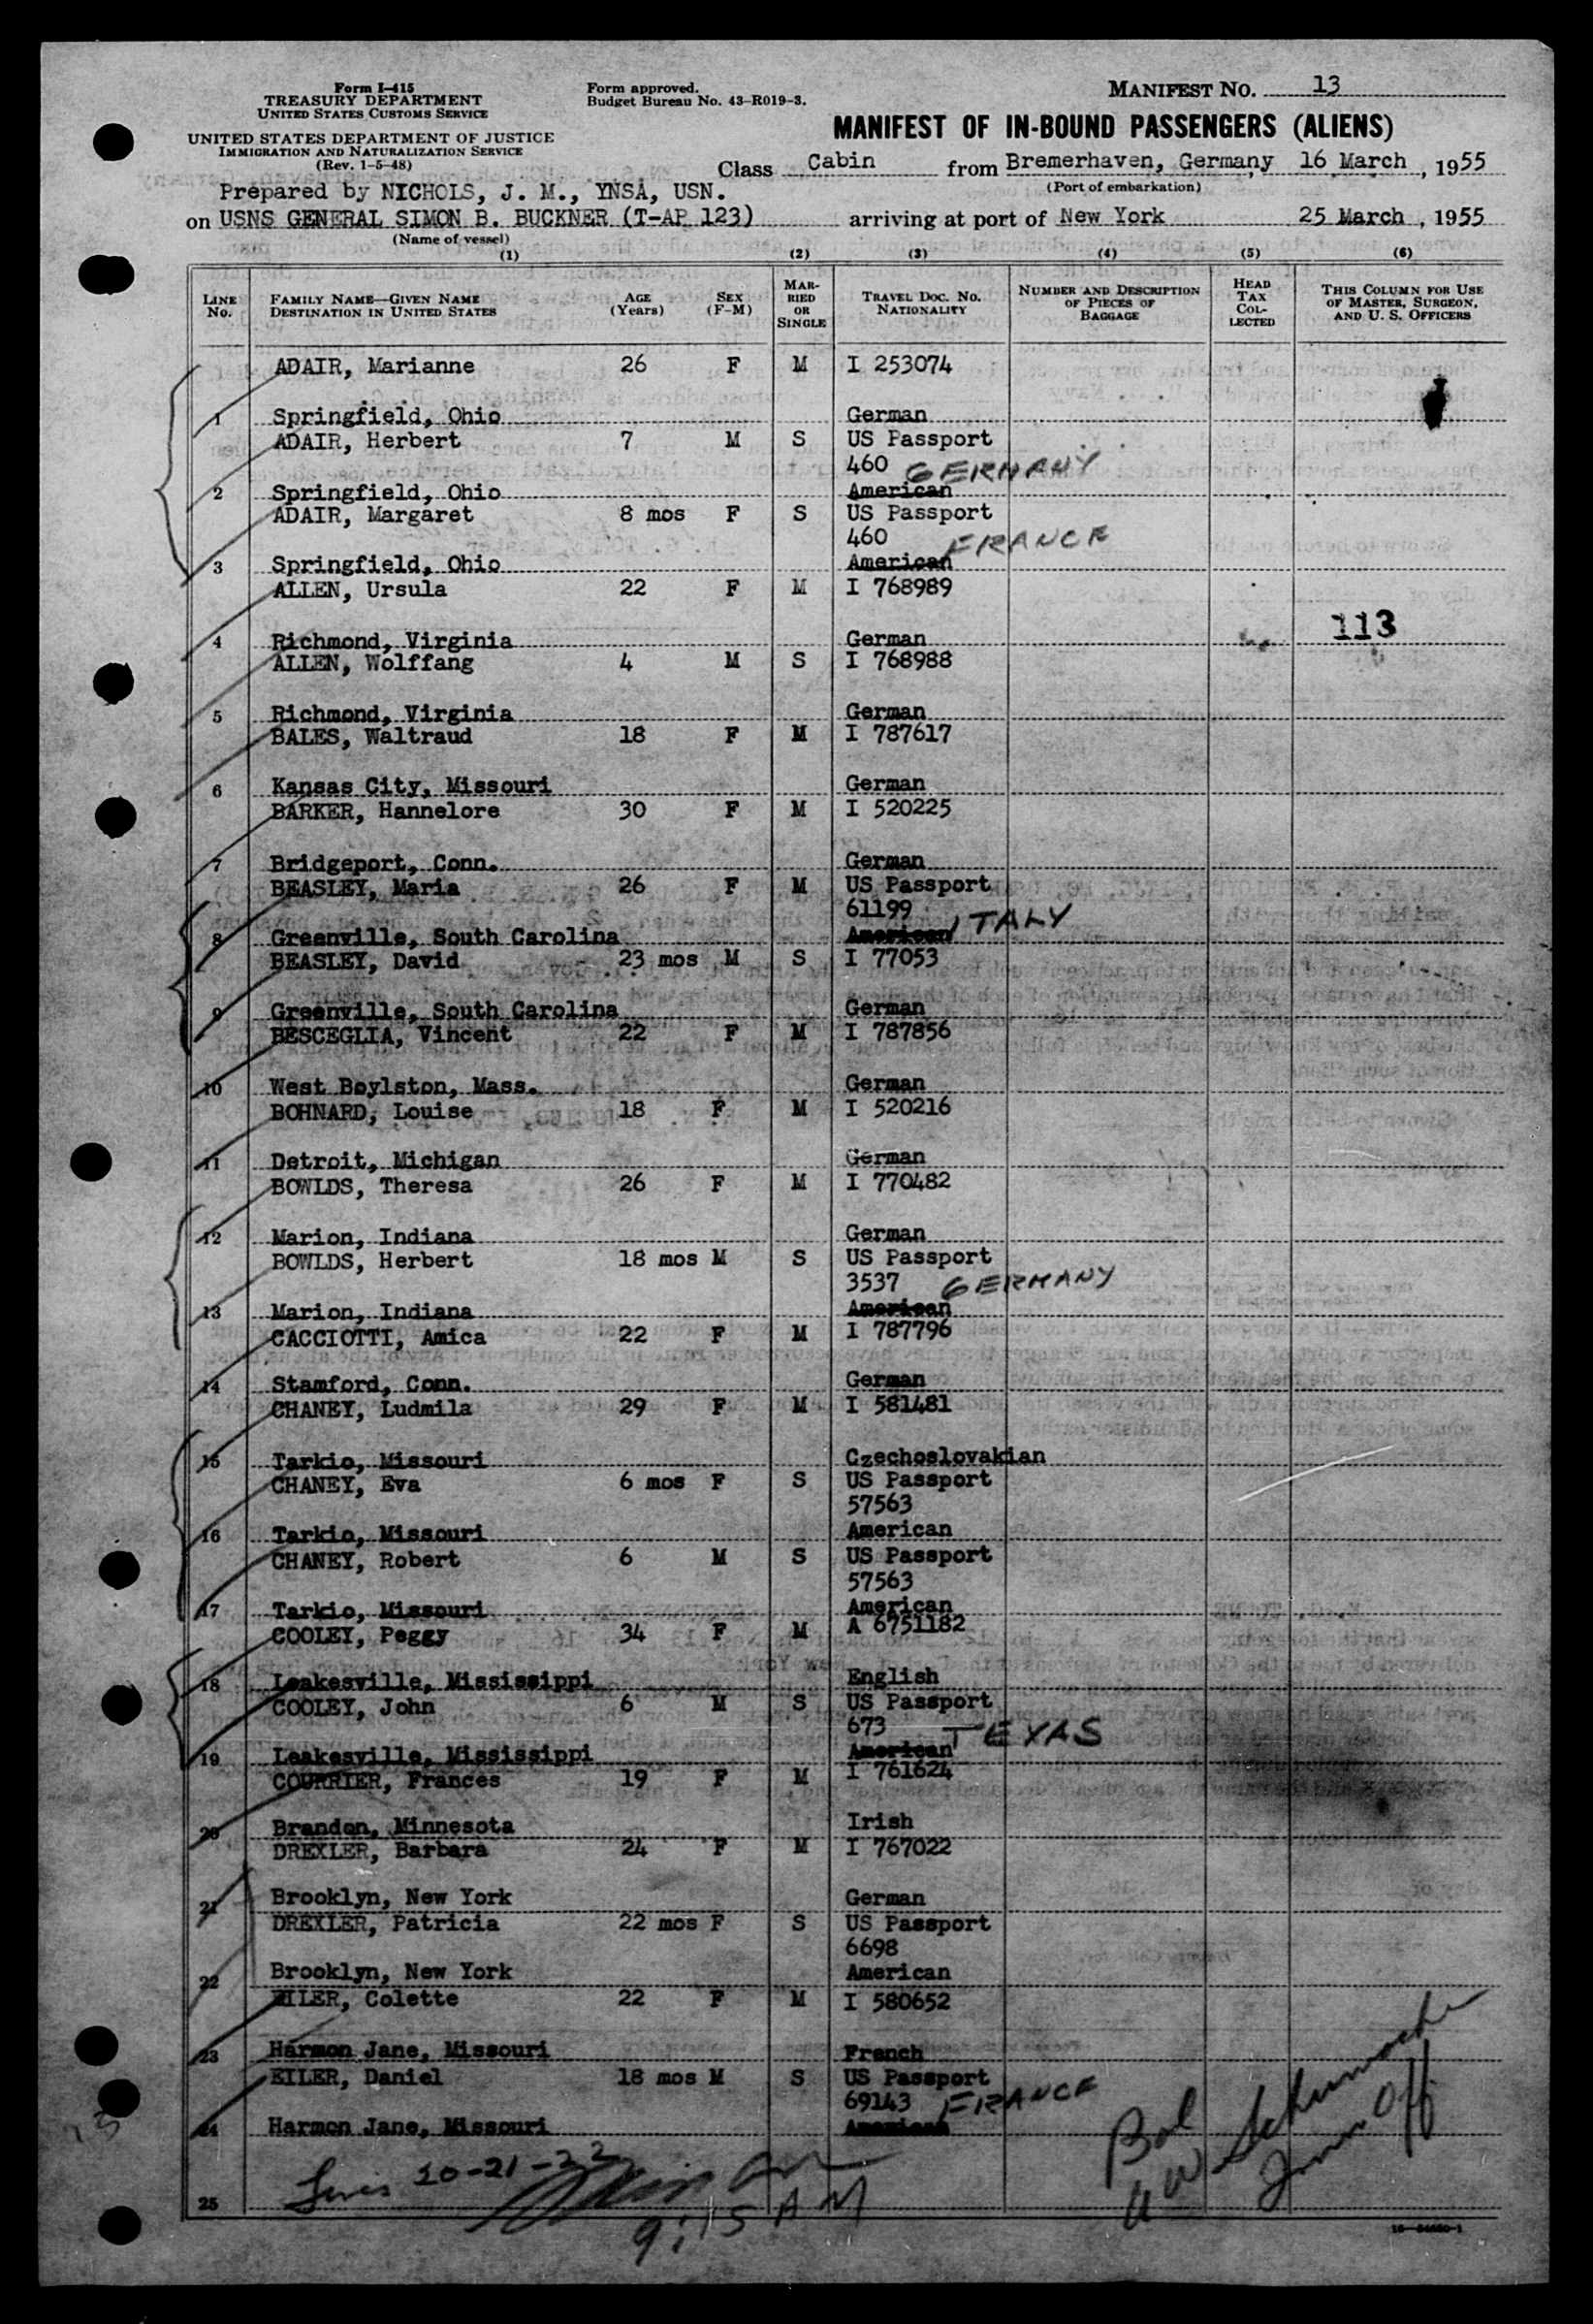 Form I-415
TREASURY DEPARTMENT
UNITED STATES CUSTOMS SERVICE
UNITED STATES DEPARTMENT OF JUSTICE
IMMIGRATION AND NATURALIZATION SERVICE
(Rev. 1-5-48)
Form approved.
Budget Bureau No. 43-R019-3.
MANIFEST NO. 13
MANIFEST OF IN-BOUND PASSENGERS (ALIENS)
Class Cabin from Bremerhaven, Germany 16 March, 1955
(Port of embarkation)
Prepared by NICHOLS, J. M., YNSA, USN.
on USNS GENERAL SIMON B. BUCKNER (T-AP 123) arriving at port of New York 25 March, 1955
(Name of vessel)
(1) (2) (3) (4) (5) (6)
LINE NO. FAMILY NAME—GIVEN NAME DESTINATION IN UNITED STATES AGE (Years) SEX (F-M) MARRIED OR SINGLE TRAVEL DOC. NO. NATIONALITY NUMBER AND DESCRIPTION OF PIECES OF BAGGAGE HEAD TAX COLLECTED THIS COLUMN FOR USE OF MASTER, SURGEON, AND U. S. OFFICERS
ADAIR, Marianne 26 F M I 253074
1 Springfield, Ohio German
ADAIR, Herbert 7 M S US Passport
460 GERMANY
2 Springfield, Ohio American
ADAIR, Margaret 8 mos F S US Passport
460 FRANCE
3 Springfield, Ohio American
ALLEN, Ursula 22 F M I 768989
113
4 Richmond, Virginia German
ALLEN, Wolffang 4 M S I 768988
5 Richmond, Virginia German
BALES, Waltraud 18 F M I 787617
6 Kansas City, Missouri German
BARKER, Hannelore 30 F M I 520225
7 Bridgeport, Conn. German
BEASLEY, Maria 26 F M US Passport
61199
8 Greenville, South Carolina American ITALY
BEASLEY, David 23 mos M S I 77053
9 Greenville, South Carolina German
BESCEGLIA, Vincent 22 F M I 787856
10 West Boylston, Mass. German
BOHNARD, Louise 18 F M I 520216
11 Detroit, Michigan German
BOWLDS, Theresa 26 F M I 770482
12 Marion, Indiana German
BOWLDS, Herbert 18 mos M S US Passport
3537 GERMANY
13 Marion, Indiana American
CACCIOTTI, Amica 22 F M I 787796
14 Stamford, Conn. German
CHANEY, Ludmila 29 F M I 581481
15 Tarkio, Missouri Czechoslovakian
CHANEY, Eva 6 mos F S US Passport
57563
16 Tarkio, Missouri American
CHANEY, Robert 6 M S US Passport
57563
17 Tarkio, Missouri American
COOLEY, Peggy 34 F M A 6751182
18 Leakesville, Mississippi English
COOLEY, John 6 M S US Passport
673 TEXAS
19 Leakesville, Mississippi American
COURRIER, Frances 19 F M I 761624
20 Brandon, Minnesota Irish
DREXLER, Barbara 24 F M I 767022
21 Brooklyn, New York German
DREXLER, Patricia 22 mos F S US Passport
6698
22 Brooklyn, New York American
EILER, Colette 22 F M I 580652
23 Harmon Jane, Missouri French
EILER, Daniel 18 mos M S US Passport
69143 FRANCE
24 Harmon Jane, Missouri American
10-21-22
25
9:15 AM